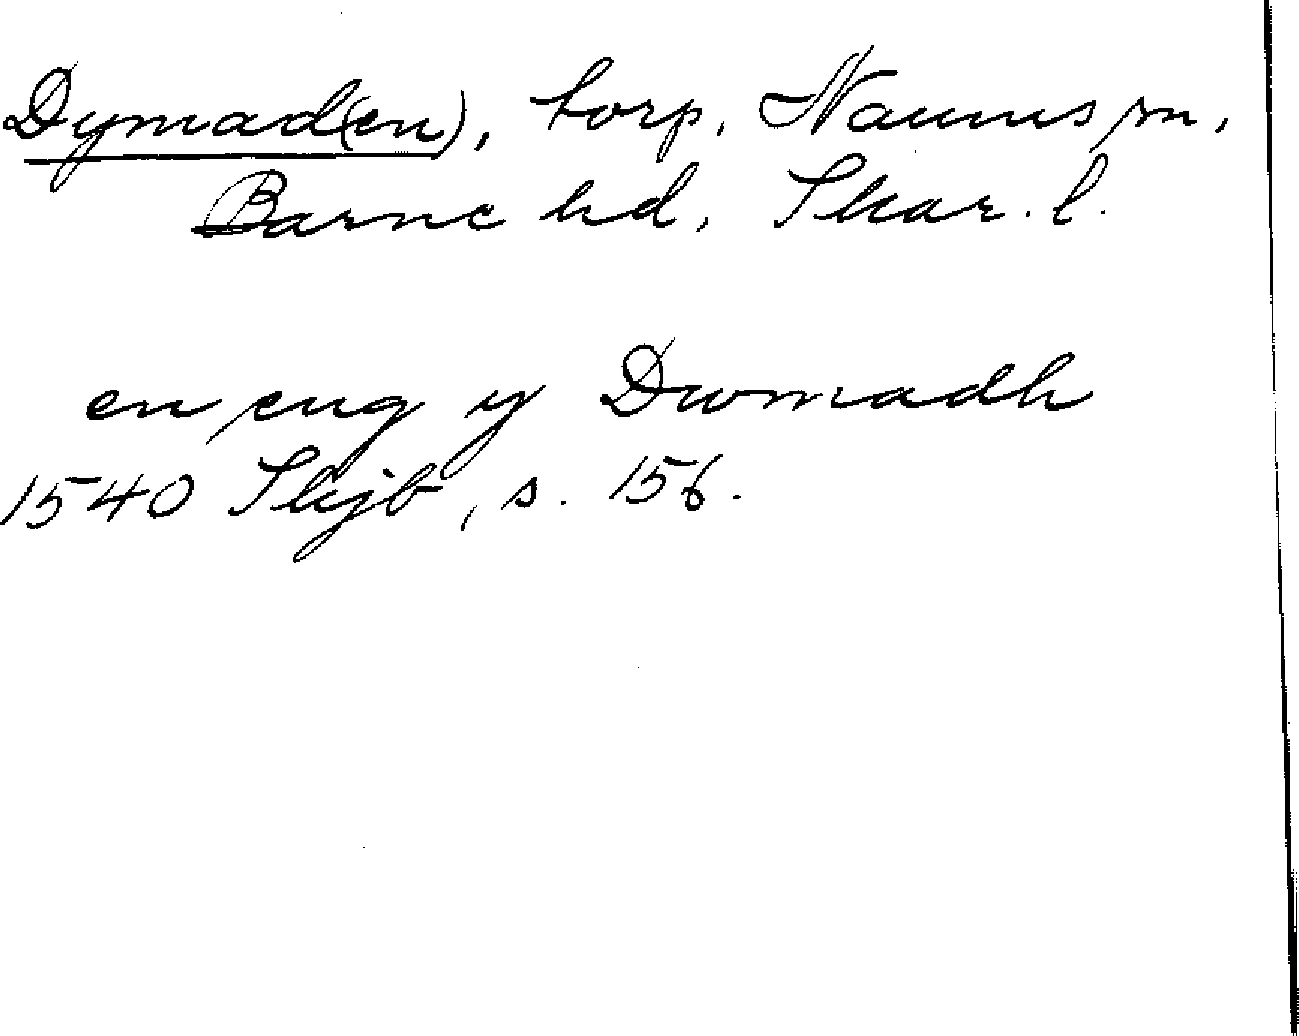 Dymad(en), torp, Naums sn,
Barne hd, Skar. l.
en eng y Dwmadh
1540 Skjb, s. 156.